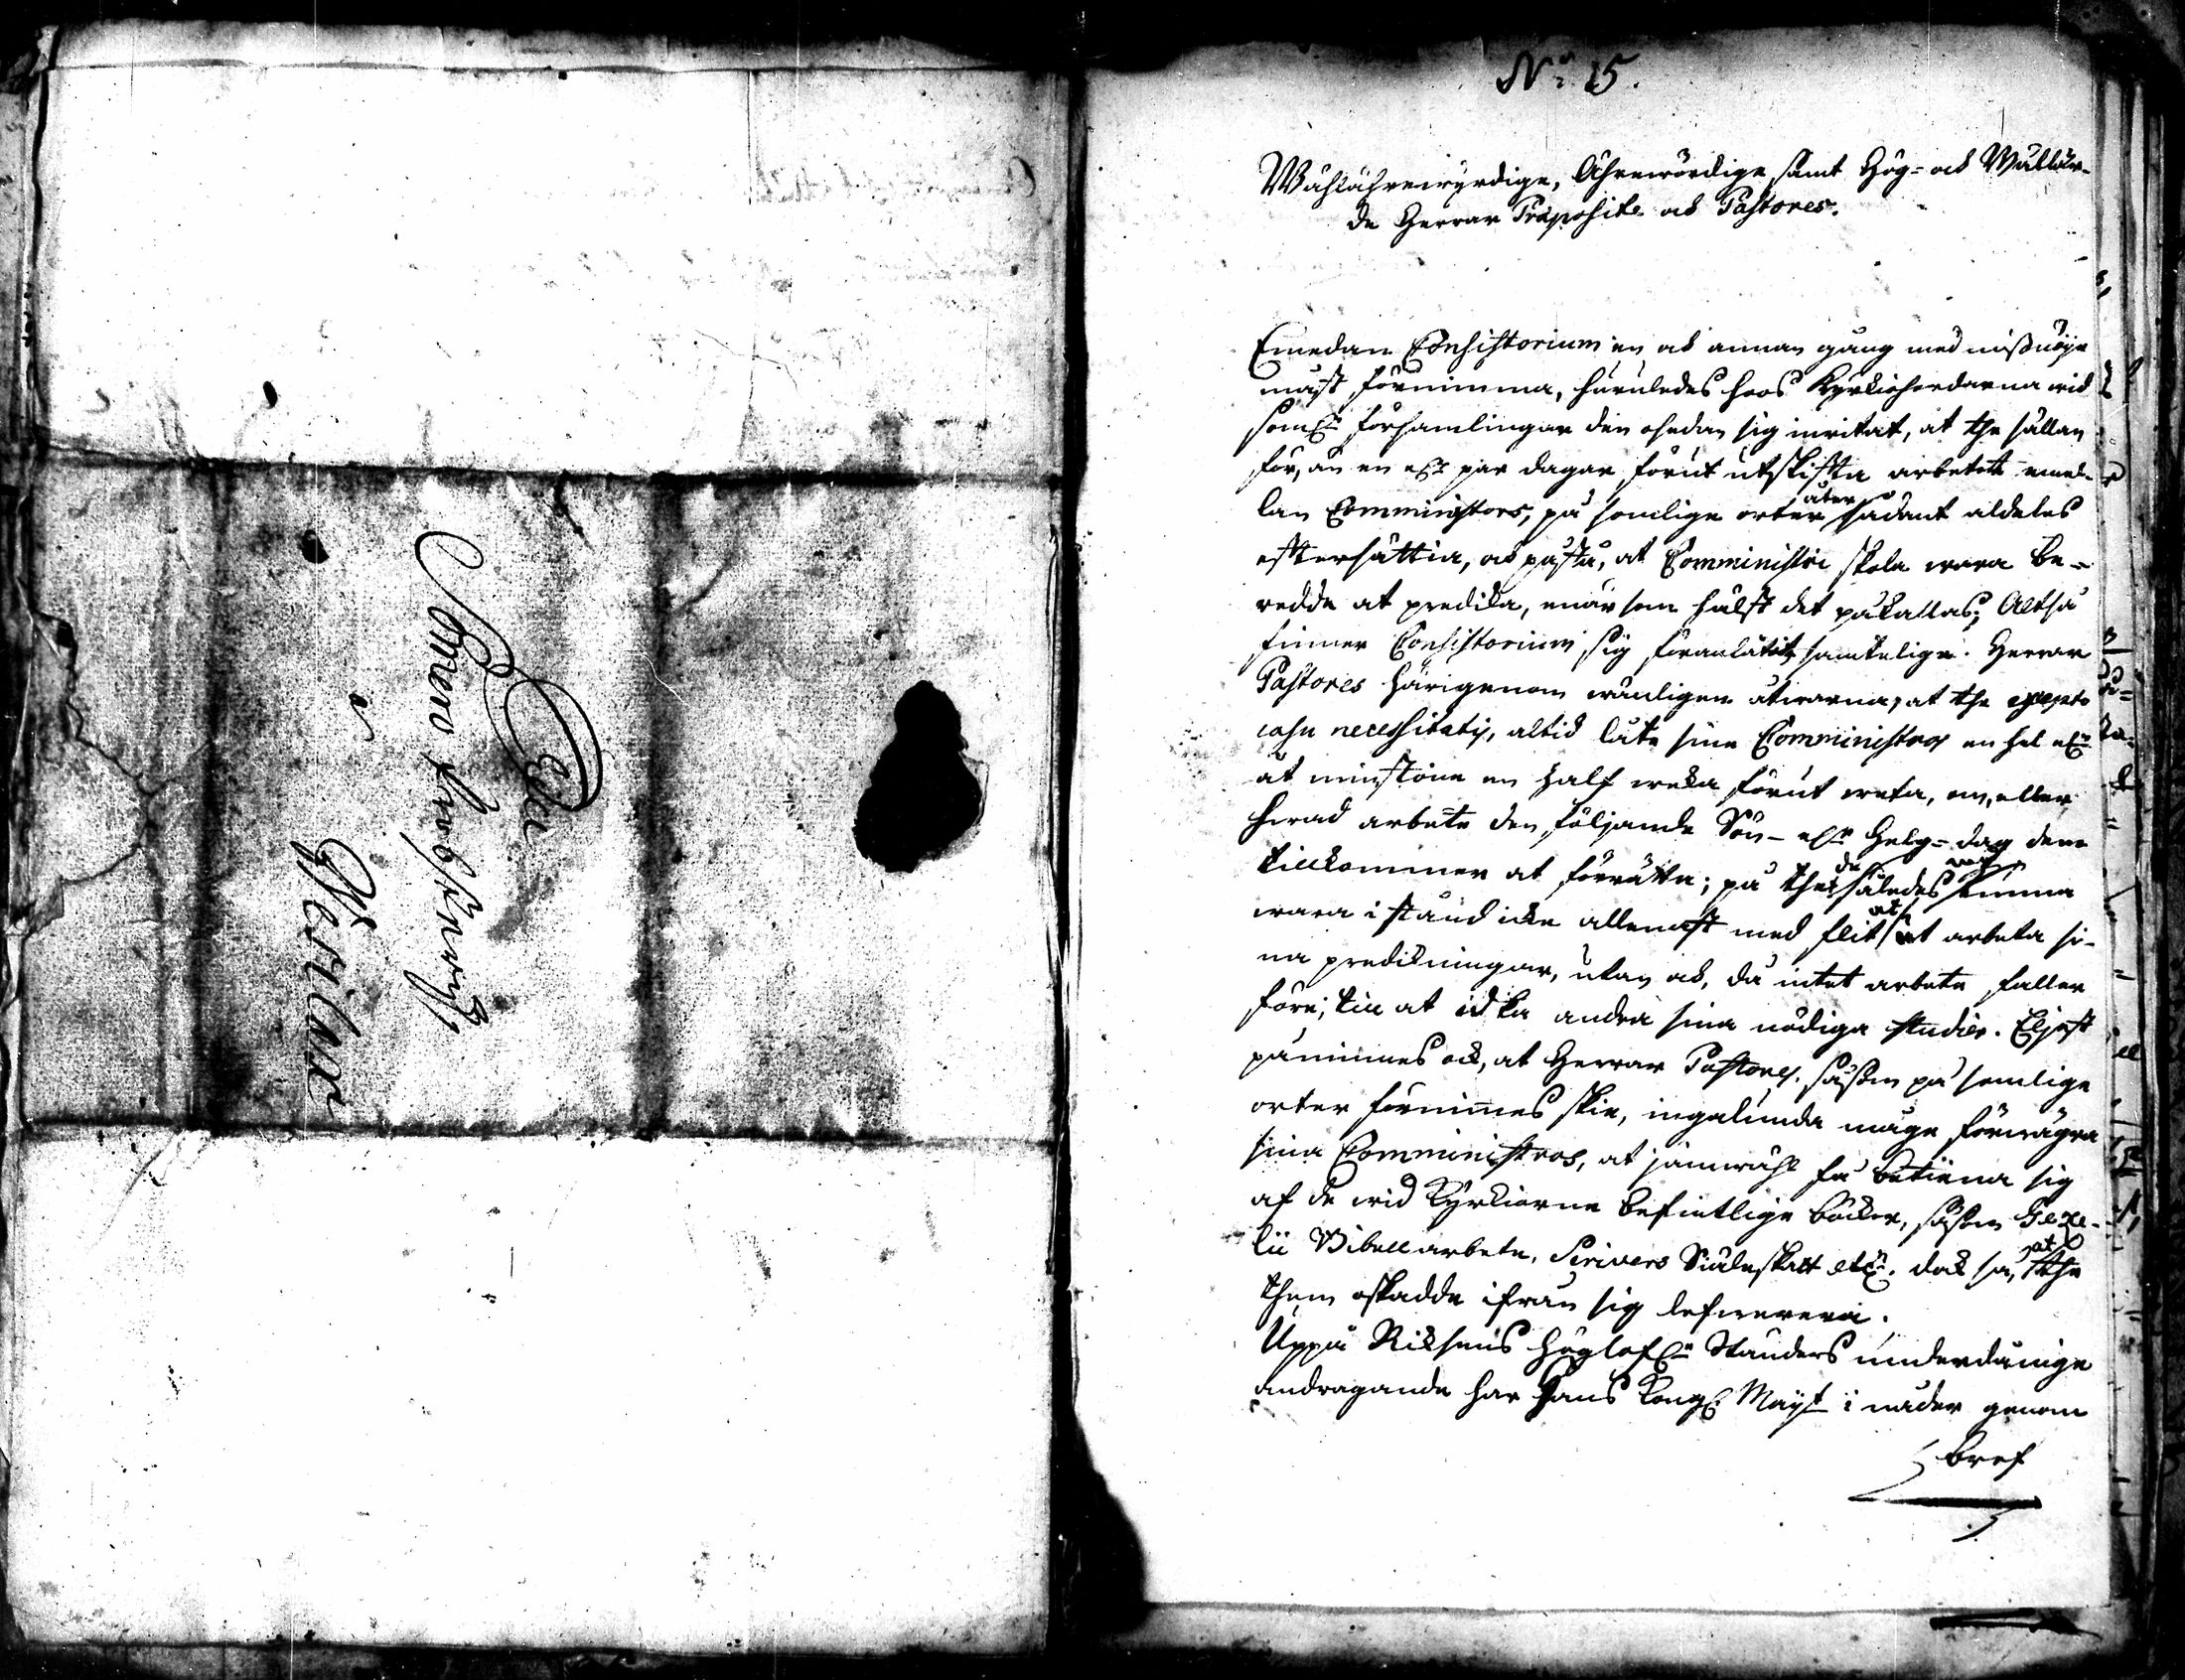 Per
Borgo
à
Werilax
No: 15.
Wählährewyrdige, Ährewördige samt Hög- ock Wällär-
de Herrar Præposite ock Pastores.
Emedan Consistorium en ock annan gång med missnöije
måst förnimma, huruledes hoos Kyrkioherdarna wid
somlI församlingar den oseden sig inritat, at the sällan
för, än en eller par dagar förut utskifta arbetet emel-
lan Comministros, på somlige orter åter sådant aldeles
eftersättia, ock påstå, at Comministri skola wara be-
redde at predika, enär som hälst det påkallas; Altså
finner Consistorium sig föranlåtit samtelige Herrar
Pastores härigenom wänligen åtwarna, at the excepto
casu necessitatis, altid låta sine Comministros en hel eller
åt minstone en half weka förut weta, om, eller
hwad arbete den följande Sön- eller Helg-dag dem
tillkommer at förrätta; på thet de således måge kunna
wara i stånd icke allenast med flit at utarbeta si-
na predikningar, utan ock, då intet arbete faller
före, till at idka andra sina nödiga studier. Eljest
påminnes ock, at Herrar Pastores, såsom på somlige
orter förnimmes skie, ingalunda måge förwägra
sina Comministros, at jämwäl få betiena sig
af de wid Kyrkiorne befintlige böcker, såsom Geze-
lii Bibelarbete, Scrivers Siäleskatt etc. dock så, at the
them oskadde ifrån sig lefwerera.
Uppå Riksens Höglofl. Ständers underdånige
andragande har Hans Kongl. Mayt i nåder genom
bref